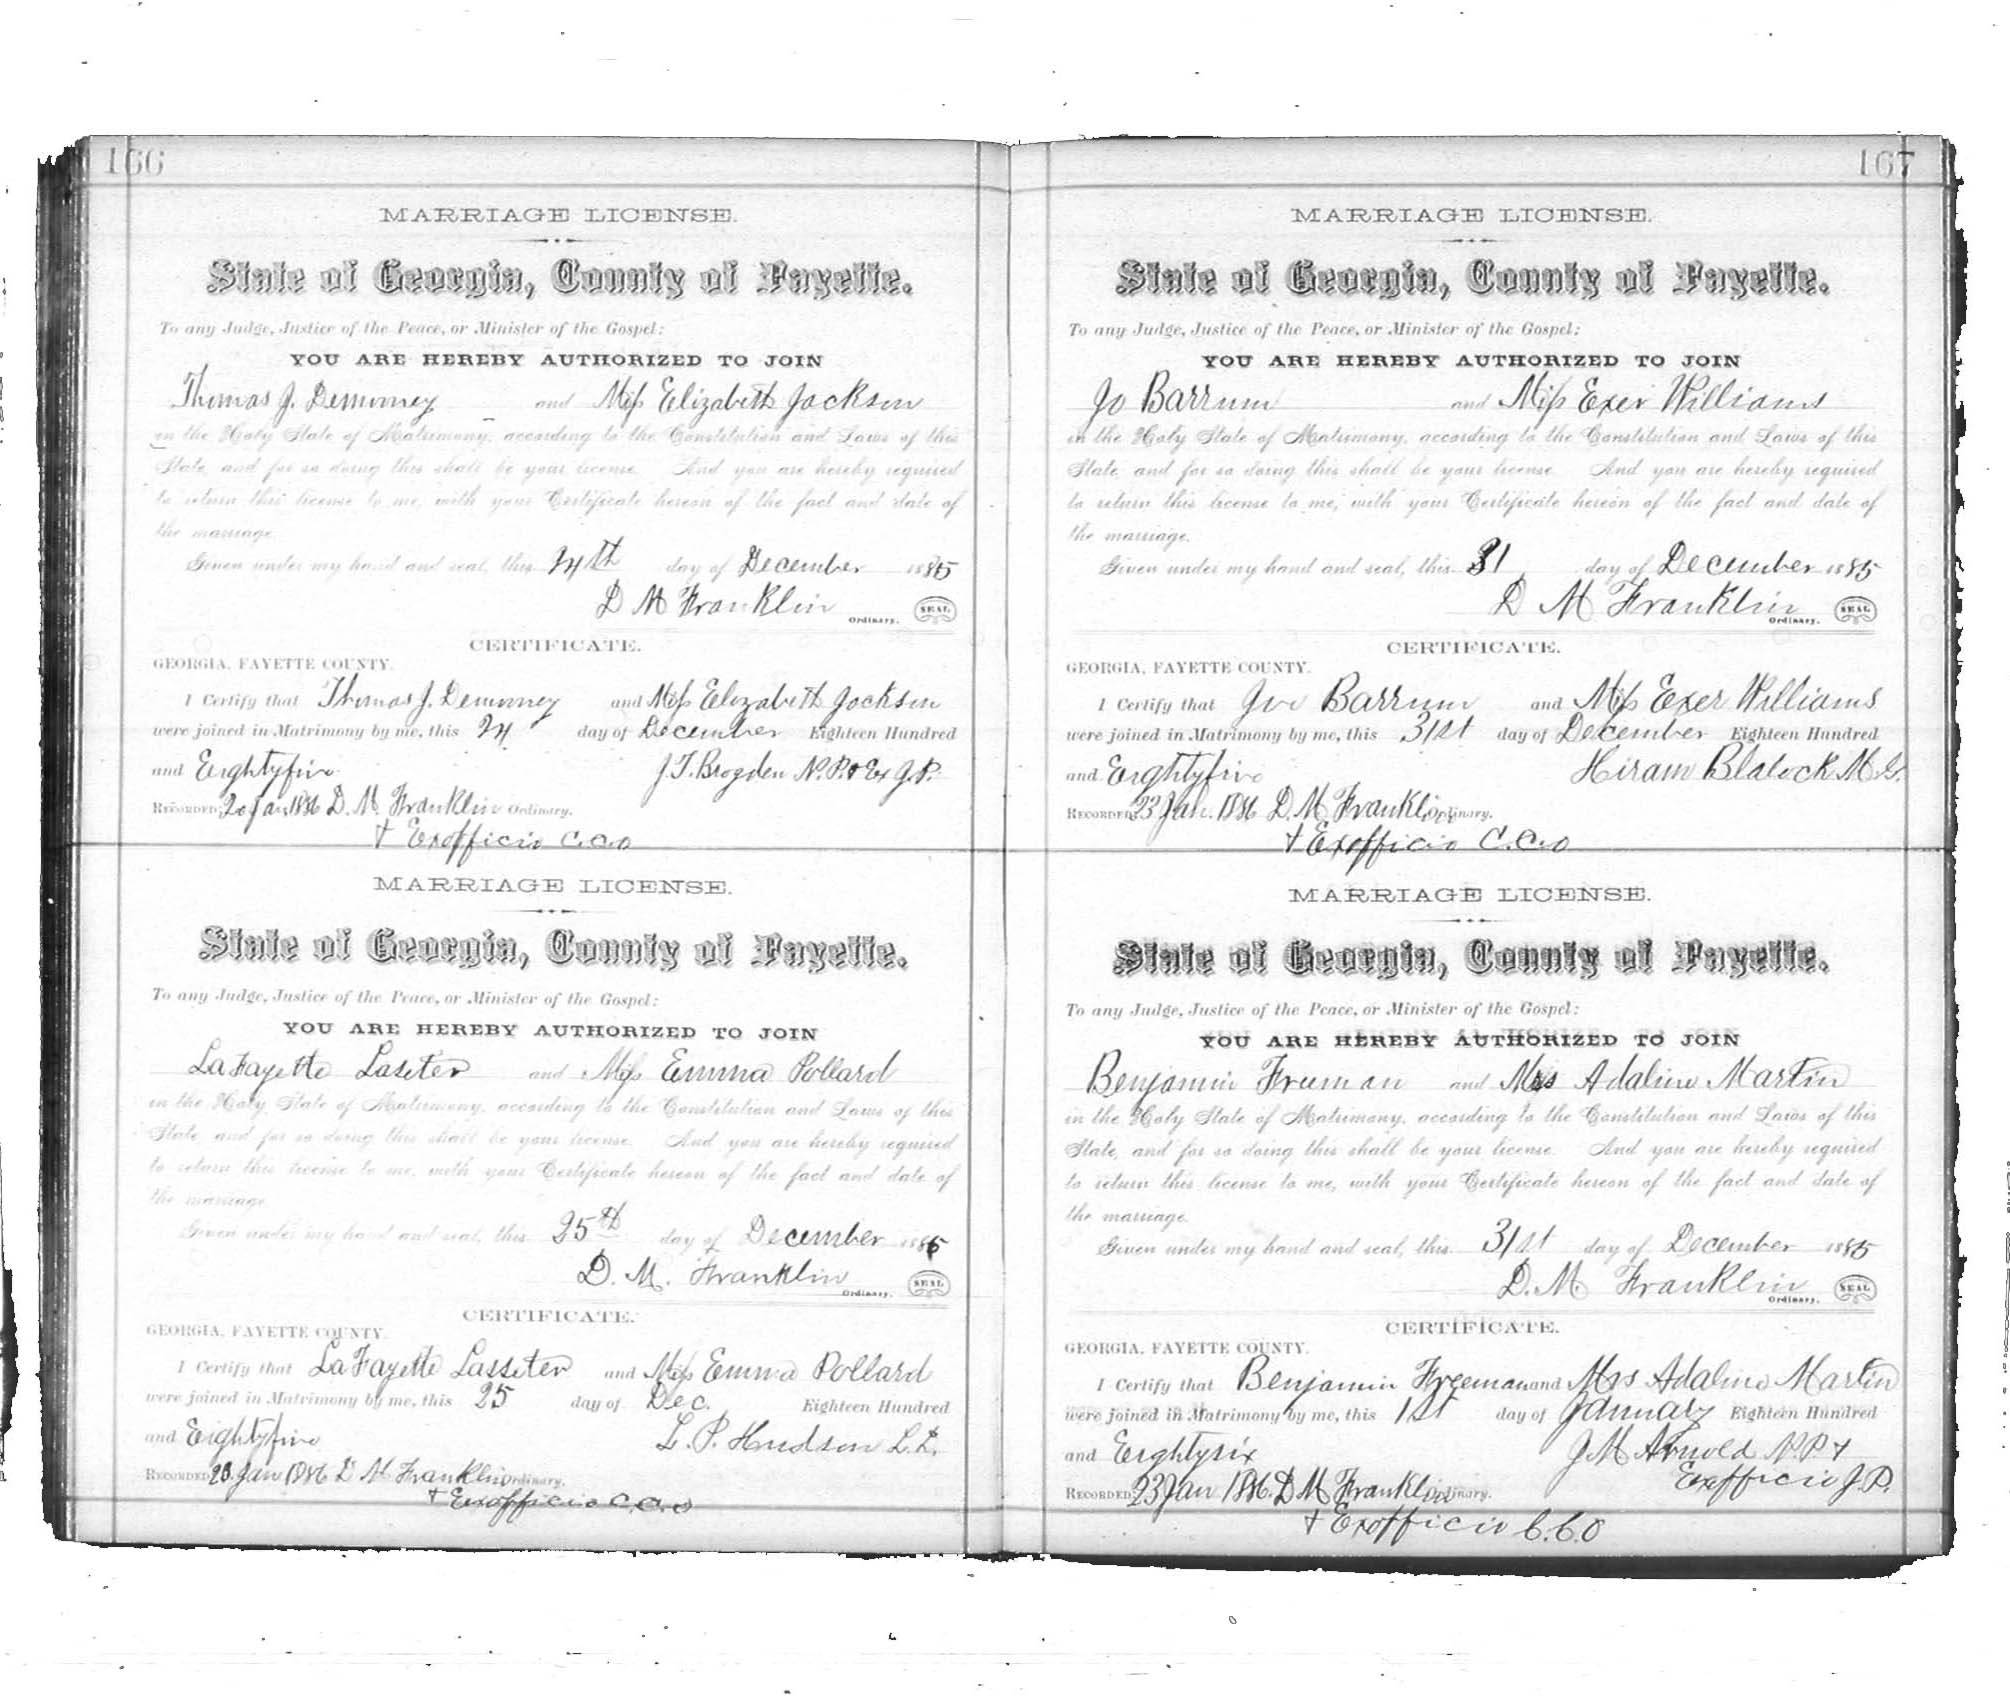 166
MARRIAGE LICENSE.
State of Georgia, County of Fayette.
To any Judge, Justice of the Peace, or Minister of the Gospel:
YOU ARE HEREBY AUTHORIZED TO JOIN
Thomas J. Demmney and Miss Elizabeth Jackson
in the Holy State of Matrimony, according to the Constitution and Laws of this
State, and for so doing this shall be your license. And you are hereby required
to return this license to me, with your Certificate hereon of the fact and date of
the marriage.
Given under my hand and seal, this 24th day of December 1885
D M Franklin Ordinary. SEAL
CERTIFICATE.
GEORGIA, FAYETTE COUNTY.
I Certify that Thomas J. Demmney and Miss Elizabeth Jackson
were joined in Matrimony by me, this 24 day of December Eighteen Hundred
and Eightyfive J. T. Brogden N. P. & Ex J. P.
RECORDED, 20 Jan, 1886 D. M. Franklin Ordinary.
+ Exofficio C.C.O
MARRIAGE LICENSE.
State of Georgia, County of Fayette.
To any Judge, Justice of the Peace, or Minister of the Gospel:
YOU ARE HEREBY AUTHORIZED TO JOIN
LaFayette Laseter and Miss Emma Pollard
in the Holy State of Matrimony, according to the Constitution and Laws of this
State, and for so doing this shall be your license. And you are hereby required
to return this license to me, with your Certificate hereon of the fact and date of
the marriage.
Given under my hand and seal, this 25th day of December 1885
D. M. Franklin Ordinary. SEAL
CERTIFICATE.
GEORGIA, FAYETTE COUNTY.
I Certify that LaFayette Lasseter and Miss Emma Pollard
were joined in Matrimony by me, this 25 day of Dec. Eighteen Hundred
and Eightyfive L. P. Hudson L. D.
RECORDED, 23. Jan 1886 D M Franklin Ordinary.
+ Exofficio C.C.O
167
MARRIAGE LICENSE.
State of Georgia, County of Fayette.
To any Judge, Justice of the Peace, or Minister of the Gospel:
YOU ARE HEREBY AUTHORIZED TO JOIN
Jo Barrum and Miss Exer Williams
in the Holy State of Matrimony, according to the Constitution and Laws of this
State, and for so doing this shall be your license. And you are hereby required
to return this license to me, with your Certificate hereon of the fact and date of
the marriage.
Given under my hand and seal, this 31 day of December 1885
D M Franklin Ordinary. SEAL
CERTIFICATE.
GEORGIA, FAYETTE COUNTY.
I Certify that Joe Barrum and Miss Exer Williams
were joined in Matrimony by me, this 31st day of December Eighteen Hundred
and Eightyfive Hiram Blalock M. G.
RECORDED, 23 Jan. 1886 D. M Franklin Ordinary.
+ Exofficio C.C.O
MARRIAGE LICENSE.
State of Georgia, County of Fayette.
To any Judge, Justice of the Peace, or Minister of the Gospel:
YOU ARE HEREBY AUTHORIZED TO JOIN
Benjamin Freeman and Mrs Adaline Martin
in the Holy State of Matrimony, according to the Constitution and Laws of this
State, and for so doing this shall be your license. And you are hereby required
to return this license to me, with your Certificate hereon of the fact and date of
the marriage.
Given under my hand and seal, this 31st day of December 1885
D. M. Franklin Ordinary. SEAL
CERTIFICATE.
GEORGIA, FAYETTE COUNTY.
I Certify that Benjamin Freeman and Mrs Adaline Martin
were joined in Matrimony by me, this 1st day of January Eighteen Hundred
and Eightysix J M Arnold N. P. +
Exofficio J. P.
RECORDED, 23 Jan 1886. D M Franklin Ordinary.
+ Exofficio C.C.O